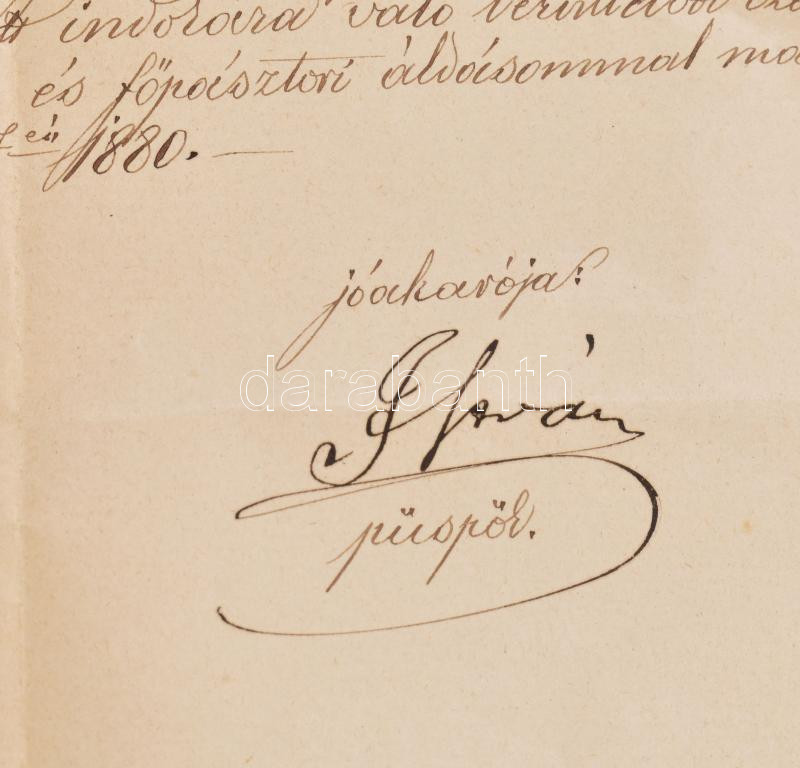 indokára való
és főpásztori áldásommal ma
1880.
jóakarója:
István
darabanth
püspök.